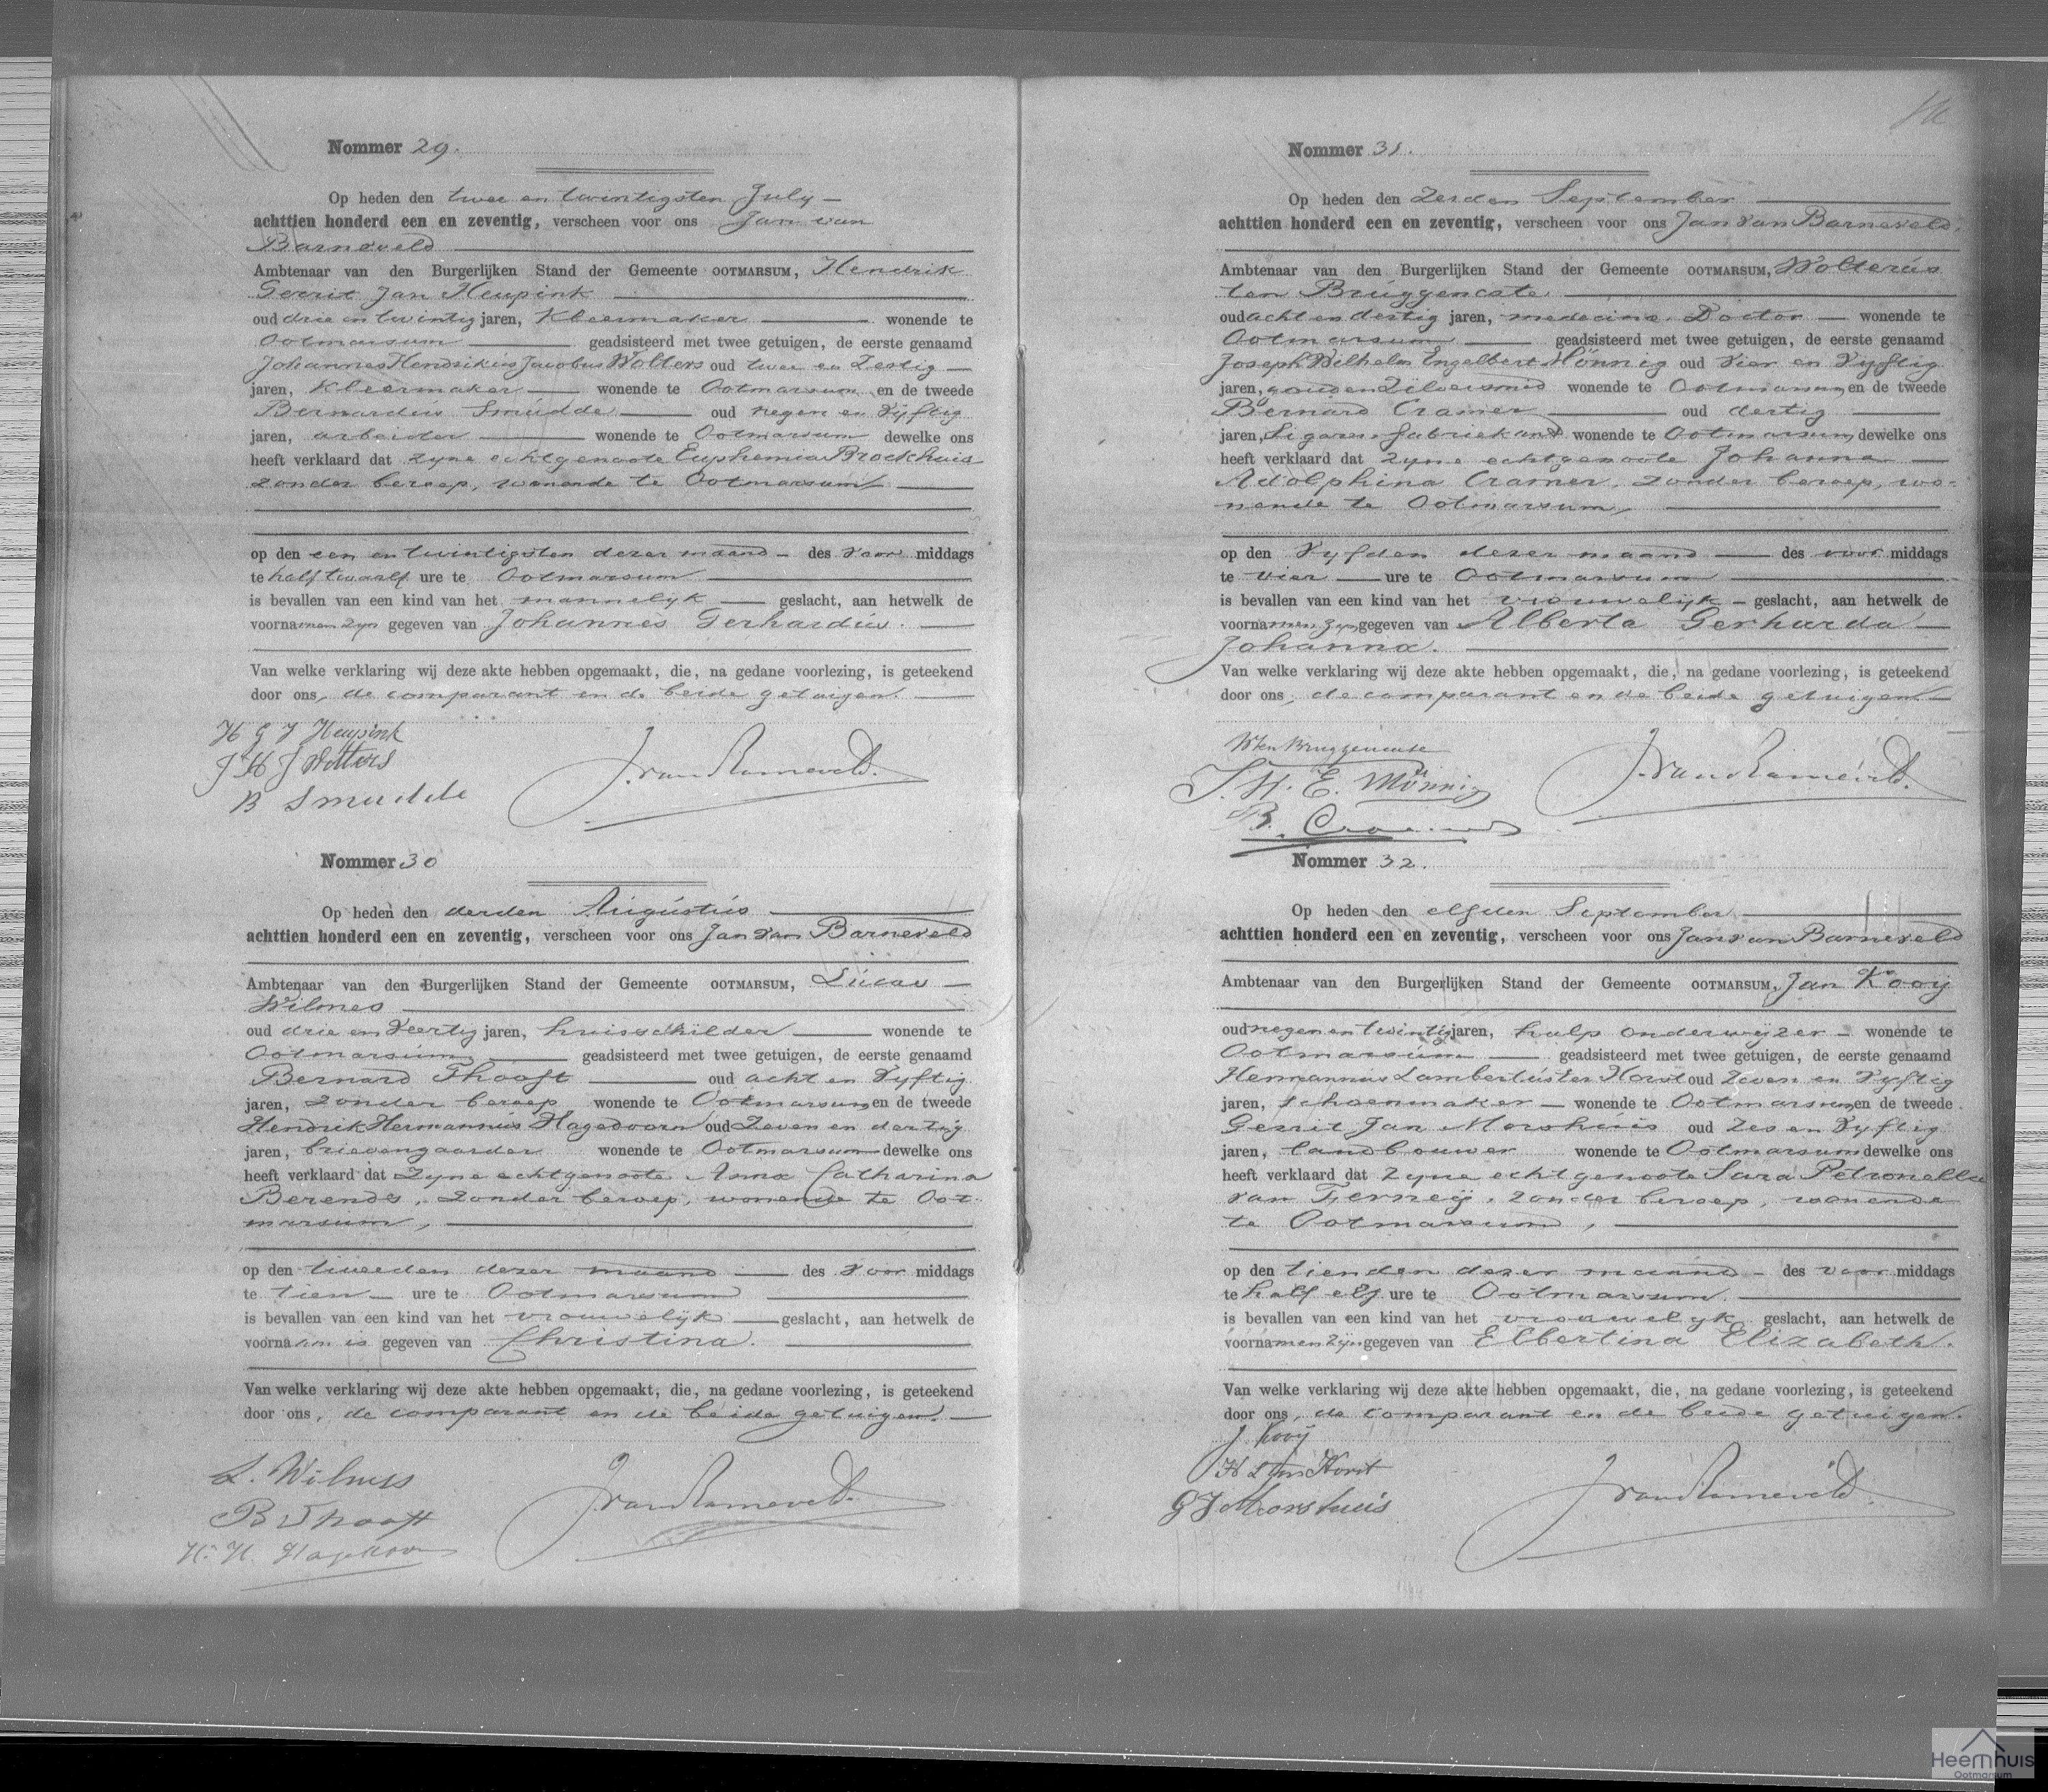 Nommer 29.
Op heden den twee en twintigsten July
achttien honderd een en zeventig, verscheen voor ons Jan van
Barneveld
Ambtenaar van den Burgerlijken Stand der Gemeente OOTMARSUM, Hendrik
Gerrit Jan Heupink
oud drie en twintig jaren, Kleermaker wonende te
Ootmarsum geadsisteerd met twee getuigen, de eerste genaamd
Johannes Hendrikus Jacobus Wolters oud twee en Zestig
jaren, Kleermaker wonende te Ootmarsum en de tweede
Bernardus Smudde oud negen en Vyftig
jaren, arbeider wonende te Ootmarsum dewelke ons
heeft verklaard dat zyne echtgenoote Euphemia Brockhuis
zonder beroep, wonende te Ootmarsum
op den een en twintigsten dezer maand des voor middags
te half twaalf ure te Ootmarsum
is bevallen van een kind van het mannelyk geslacht, aan hetwelk de
voornamen zyn gegeven van Johannes Gerhardus.
Van welke verklaring wij deze akte hebben opgemaakt, die, na gedane voorlezing, is geteekend
door ons, de comparant en de beide getuigen
H G J Heupink
J H J Wolters
B Smudde
J. van Barneveld.
Nommer 30
Op heden den derden Augustus
achttien honderd een en zeventig, verscheen voor ons Jan van Barneveld
Ambtenaar van den Burgerlijken Stand der Gemeente OOTMARSUM, Lucas
Wilmes
oud drie en Veertig jaren, huisschilder wonende te
Ootmarsum geadsisteerd met twee getuigen, de eerste genaamd
Bernard Thooft oud acht en Vyftig
jaren, zonder beroep wonende te Ootmarsum en de tweede
Hendrik Hermannus Hagedoorn oud Zeven en dertig
jaren, brievengaarder wonende te Ootmarsum dewelke ons
heeft verklaard dat Zyne echtgenoote Anna Catharina
Berends, zonder beroep, wonende te Oot-
marsum,
op den tweeden dezer maand des voor middags
te tien ure te Ootmarsum
is bevallen van een kind van het vrouwelyk geslacht, aan hetwelk de
voornaam is gegeven van Christina.
Van welke verklaring wij deze akte hebben opgemaakt, die, na gedane voorlezing, is geteekend
door ons, de comparant en de beide getuigen.
L. Wilmes
B Thooft
H. H. Hagedoorn
J. van Barneveld.
Nommer 31.
Op heden den Zesden September
achttien honderd een en zeventig, verscheen voor ons Jan van Barneveld.
Ambtenaar van den Burgerlijken Stand der Gemeente OOTMARSUM, Wolterus
ten Bruggencate
oud acht en dertig jaren, medecine Doctor wonende te
Ootmarsum geadsisteerd met twee getuigen, de eerste genaamd
Joseph Wilhelm Engelbert Mönnig oud Vier en Vyftig
jaren, goud en Zilversmid wonende te Ootmarsum en de tweede
Bernard Cramer oud dertig
jaren, Sigaren fabriekant wonende te Ootmarsum dewelke ons
heeft verklaard dat zyne echtgenoote Johanna
Adolphina Cramer, zonder beroep, wo-
nende te Ootmarsum,
op den Vyfden dezer maand des voor middags
te vier ure te Ootmarsum
is bevallen van een kind van het vrouwelyk geslacht, aan hetwelk de
voornamen zyn gegeven van Alberta Gerharda
Johanna.
Van welke verklaring wij deze akte hebben opgemaakt, die, na gedane voorlezing, is geteekend
door ons, de comparant en de beide getuigen
W ten Bruggencate
J. W. E. Mönnig
B. Cramer
J. van Barneveld.
Nommer 32.
Op heden den elfden September
achttien honderd een en zeventig, verscheen voor ons Jan van Barneveld
Ambtenaar van den Burgerlijken Stand der Gemeente OOTMARSUM, Jan Kooy
oud negen en twintig jaren, hulp onderwyzer wonende te
Ootmarsum geadsisteerd met twee getuigen, de eerste genaamd
Hermannus Lambertus ter Horst oud Zeven en Vyftig
jaren, schoenmaker wonende te Ootmarsum en de tweede
Gerrit Jan Morshuis oud Zes en Vyftig
jaren, landbouwer wonende te Ootmarsum dewelke ons
heeft verklaard dat zyne echtgenoote Sara Petronella
van Ferneij, zonder beroep, wonende
te Ootmarsum,
op den tienden dezer maand des voor middags
te half elf ure te Ootmarsum.
is bevallen van een kind van het vrouwelyk geslacht, aan hetwelk de
voornamen zijn gegeven van Elbertina Elizabeth.
Van welke verklaring wij deze akte hebben opgemaakt, die, na gedane voorlezing, is geteekend
door ons, de comparant en de beide getuigen.
J Kooij
H L ter Horst
G J Morshuis
J van Barneveld.
Heemhuis
Ootmarsum